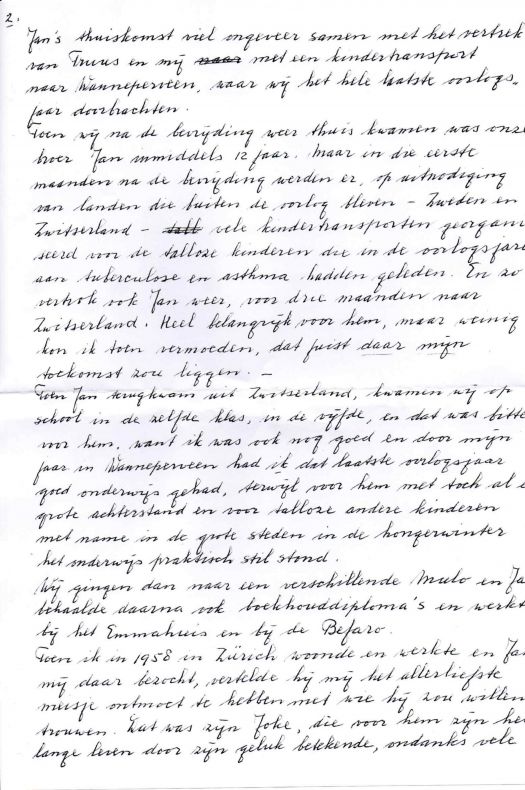 2.
Jan's thuiskomst viel ongeveer samen met het vertrek
van Truus en mij naar met een kindertransport
naar Wanneperveen, waar wij het hele laatste oorlogs-
jaar doorbrachten.
Toen wij na de bevrijding weer thuis kwamen was onze
broer Jan inmiddels 12 jaar. Maar in die eerste
maanden na de bevrijding werden er, op uitnodiging
van landen die buiten de oorlog bleven - Zweden en
Zwitserland - tall vele kindertransporten georgani
seerd voor de talloze kinderen die in de oorlogsjare
aan tuberculose en asthma hadden geleden. En zo
vertrok ook Jan weer, voor drie maanden naar
Zwitserland. Heel belangrijk voor hem, maar weinig
kon ik toen vermoeden, dat juist daar mijn
toekomst zou liggen. -
Toen Jan terugkwam uit Zwitserland, kwamen wij op
school in de zelfde klas, in de vijfde, en dat was bitte
voor hem, want ik was ook nog goed en door mijn
jaar in Wanneperveen had ik dat laatste oorlogsjaar
goed onderwijs gehad, terwijl voor hem met toch al e
grote achterstand en voor talloze andere kinderen
met name in de grote steden in de hongerwinter
het onderwijs praktisch stil stond.
Wij gingen dan naar een verschillende Mulo en Ja
behaalde daarna ook boekhouddiploma's en werkt
bij het Emmahuis en bij de Befaro.
Toen ik in 1958 in Zürich woonde en werkte en Jan
mij daar bezocht, vertelde hij mij het allerliefste
meisje ontmoet te hebben met wie hij zou willen
trouwen. Dat was zijn Joke, die voor hem zijn he
lange leven door zijn geluk betekende, ondanks vele